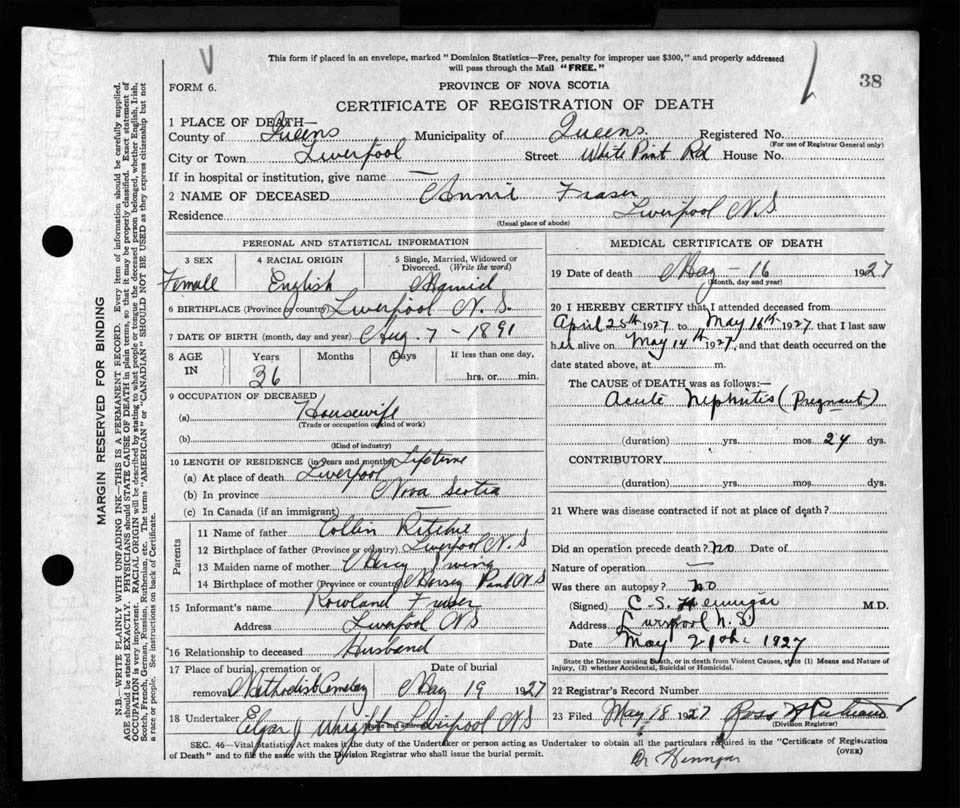 V
This form if placed in an envelope, marked "Dominion Statistics—Free, penalty for improper use $300," and properly addressed
will pass through the Mail "FREE."
38
FORM 6.
PROVINCE OF NOVA SCOTIA
CERTIFICATE OF REGISTRATION OF DEATH
1 PLACE OF DEATH—
County of Queens Municipality of Queens. Registered No.
(For use of Registrar General only)
City or Town Liverpool Street White Pint Rd House No.
If in hospital or institution, give name —
2 NAME OF DECEASED Annie Fraser
Residence Liverpool N.S.
(Usual place of abode)
PERSONAL AND STATISTICAL INFORMATION
3 SEX 4 RACIAL ORIGIN 5 Single, Married, Widowed or
Divorced. (Write the word)
Female English Married
6 BIRTHPLACE (Province or country) Liverpool N.S.
7 DATE OF BIRTH (month, day and year) Aug. 7 - 1891
8 AGE IN Years Months Days If less than one day,
36 hrs. or min.
9 OCCUPATION OF DECEASED
(a) Housewife
(Trade or occupation or kind of work)
(b)
(Kind of industry)
10 LENGTH OF RESIDENCE (in years and months) Lifetime
(a) At place of death Liverpool
(b) In province Nova Scotia
(c) In Canada (if an immigrant) —
Parents
11 Name of father Collin Ritchie
12 Birthplace of father (Province or country) Liverpool N.S
13 Maiden name of mother
14 Birthplace of mother (Province or country) Pint N.S
15 Informant's name Rowland Fraser
Address Liverpool NS
16 Relationship to deceased Husband
17 Place of burial, cremation or Date of burial
removal Methodist Cemetery May 19 1927
18 Undertaker Elgar J Wright Liverpool NS
(Name and address)
MEDICAL CERTIFICATE OF DEATH
19 Date of death May - 16 1927
(Month, day and year)
20 I HEREBY CERTIFY that I attended deceased from
April 25th 1927 to May 16th 1927, that I last saw
her alive on May 14th 1927, and that death occurred on the
date stated above, at m.
The CAUSE OF DEATH was as follows:—
Acute Nephritis (Pregnant)
(duration) yrs. mos. 24 dys.
CONTRIBUTORY
(duration) yrs. mos. dys.
21 Where was disease contracted if not at place of death?
Did an operation precede death? no Date of
Nature of operation —
Was there an autopsy? no
(Signed) C. S. Hennigar M.D.
Address Liverpool N.S.
Date May 1927
State the Disease causing Death, or in death from Violent Causes, state (1) Means and Nature of
Injury, (2) whether Accidental, Suicidal or Homicidal.
22 Registrar's Record Number
23 Filed May 18 1927 Ross
(Division Registrar)
SEC. 46—Vital Statistics Act makes it the duty of the Undertaker or person acting as Undertaker to obtain all the particulars required in the "Certificate of Registration
of Death" and to file the same with the Division Registrar who shall issue the burial permit.
(OVER)
Dr Hennigar
MARGIN RESERVED FOR BINDING
N.B.—WRITE PLAINLY WITH UNFADING INK—THIS IS A PERMANENT RECORD. Every item of information should be carefully supplied.
AGE should be stated EXACTLY. PHYSICIANS should STATE CAUSE OF DEATH in plain terms, so that it may be properly classified. Exact statement of
OCCUPATION is very important. RACIAL ORIGIN will be described by stating to what people or tongue the deceased person belonged, whether English, Irish,
Scotch, French, German, Russian, Ruthenian, etc. The terms "AMERICAN" or "CANADIAN" SHOULD NOT BE USED as they express citizenship but not
a race or people. See instructions on back of Certificate.